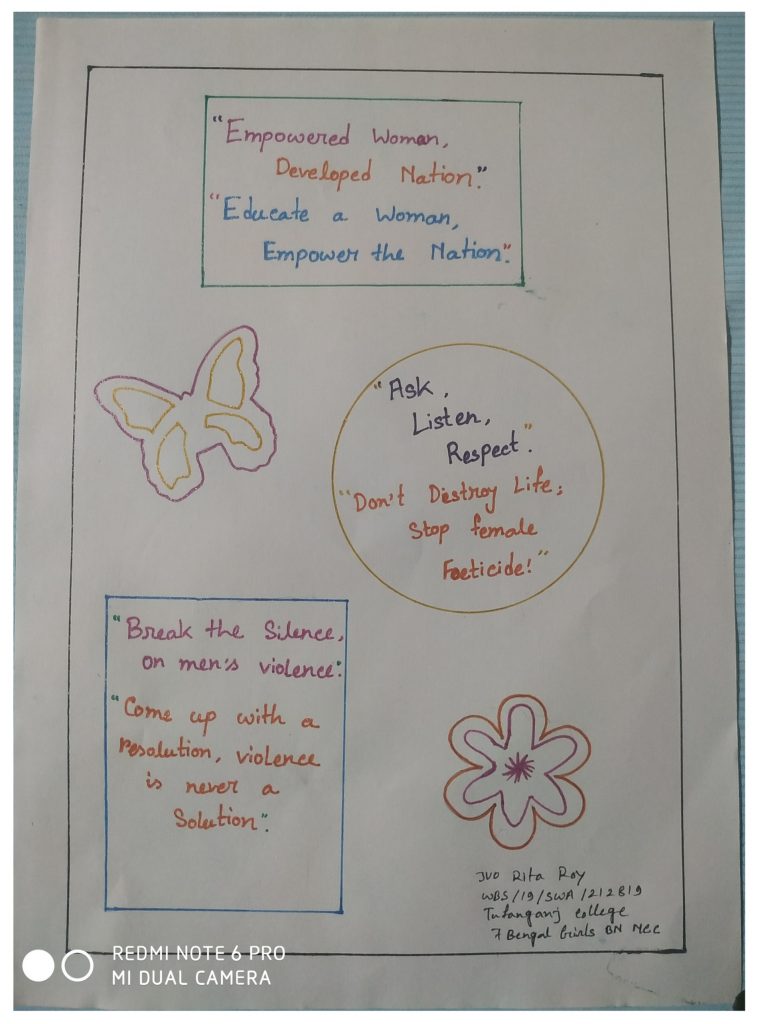 "Empowered Woman,
Developed Nation."
"Educate a Woman,
Empower the Nation."
"Ask,
Listen,
Respect".
"Don't Destroy Life;
Stop female
Foeticide!"
"Break the Silence,
on men's violence".
"Come up with a
resolution, violence
is never a
Solution".
JUO Rita Roy
WBS/19/SWA/212819
Tufanganj College
7 Bengal Girls BN NCC
REDMI NOTE 6 PRO
MI DUAL CAMERA